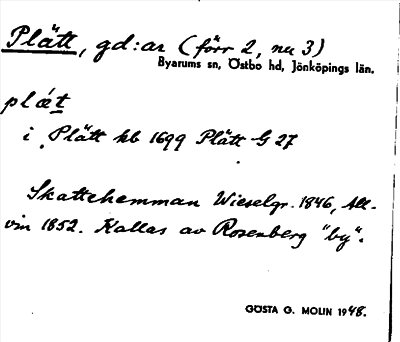 Plätt, gd:ar (förr 2, nu 3)
Byarums sn, Östbo hd, Jönköpings län.
plǽt
i Plätt kb 1699 Plätt G 27
Skattehemman Wieselgr. 1846, All-
vin 1852. Kallas av Rosenberg "by".
GÖSTA G. MOLIN 1948.